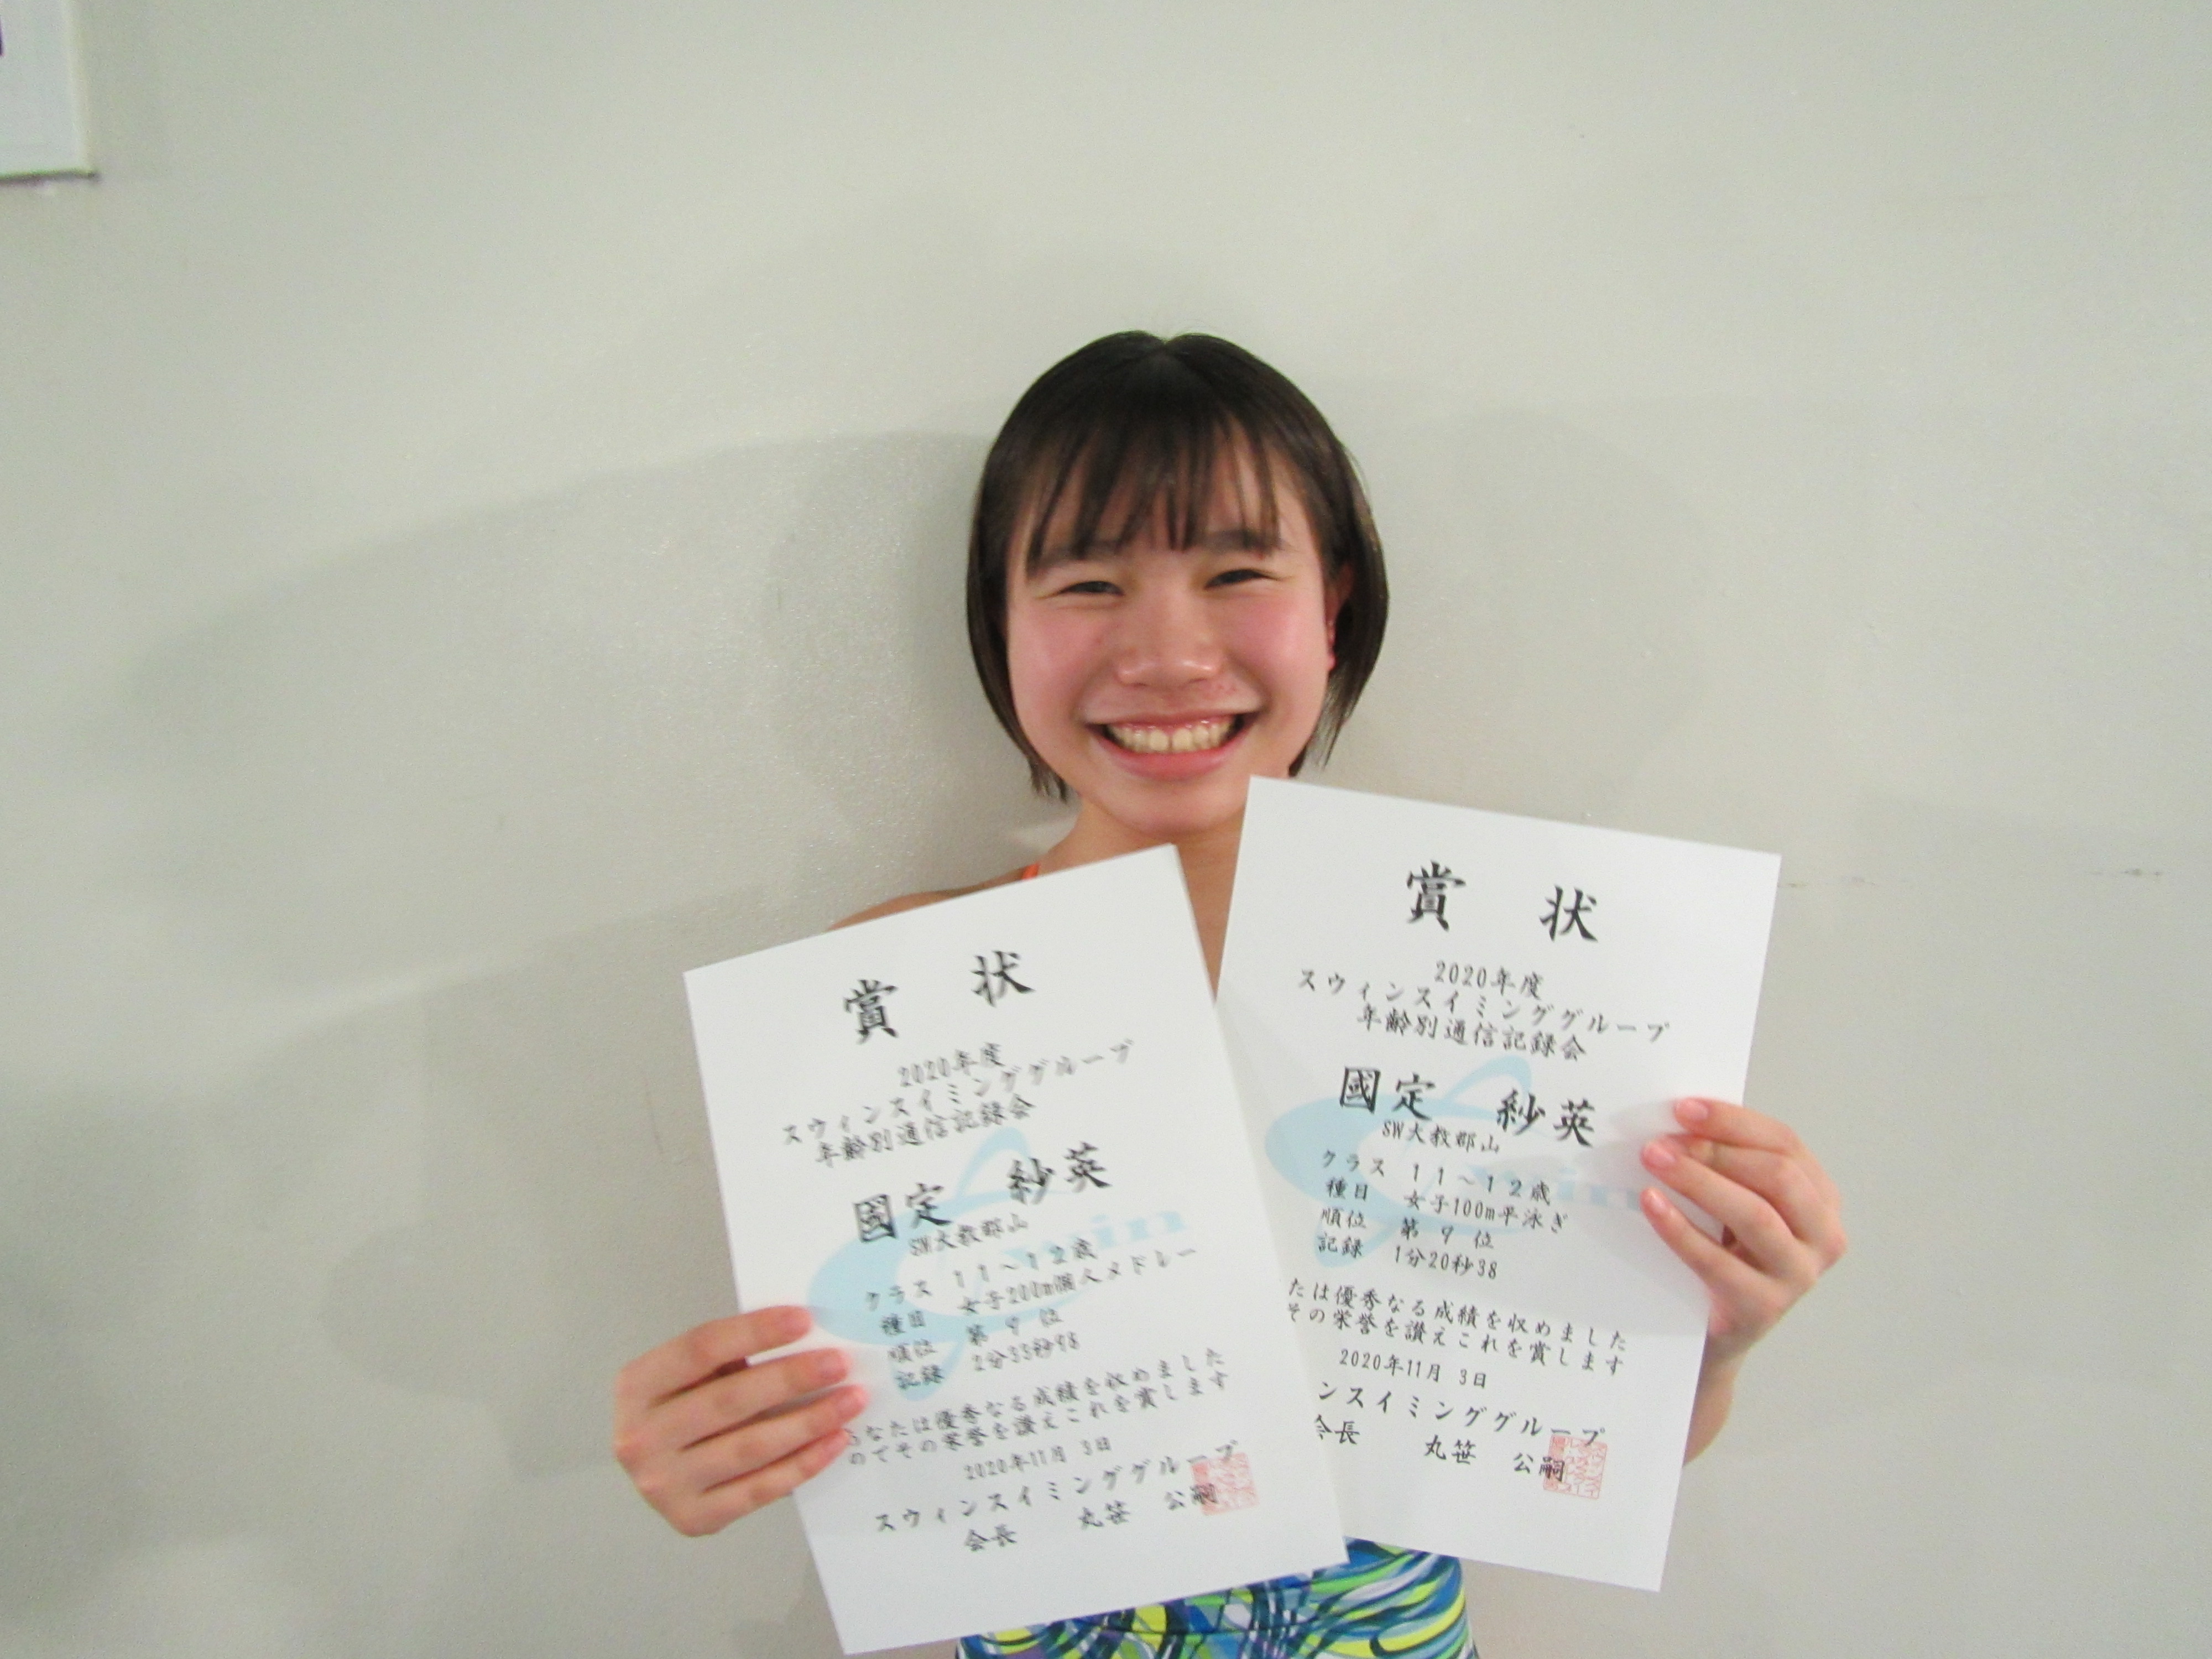 賞状
2020年度
スウィンスイミンググループ
年齢別通信記録会
國定 紗英
SW大教郡山
クラス 11～12歳
種目 女子200m個人メドレー
順位 第 9 位
記録 2分33秒98
なたは優秀なる成績を収めました
のでその栄誉を讃えこれを賞します
2020年11月 3日
スウィンスイミンググループ
会長 丸笹 公嗣
賞状
2020年度
スウィンスイミンググループ
年齢別通信記録会
國定 紗英
SW大教郡山
クラス 11～12歳
種目 女子100m平泳ぎ
順位 第 9 位
記録 1分20秒38
たは優秀なる成績を収めました
その栄誉を讃えこれを賞します
2020年11月 3日
ンスイミンググループ
会長 丸笹 公嗣